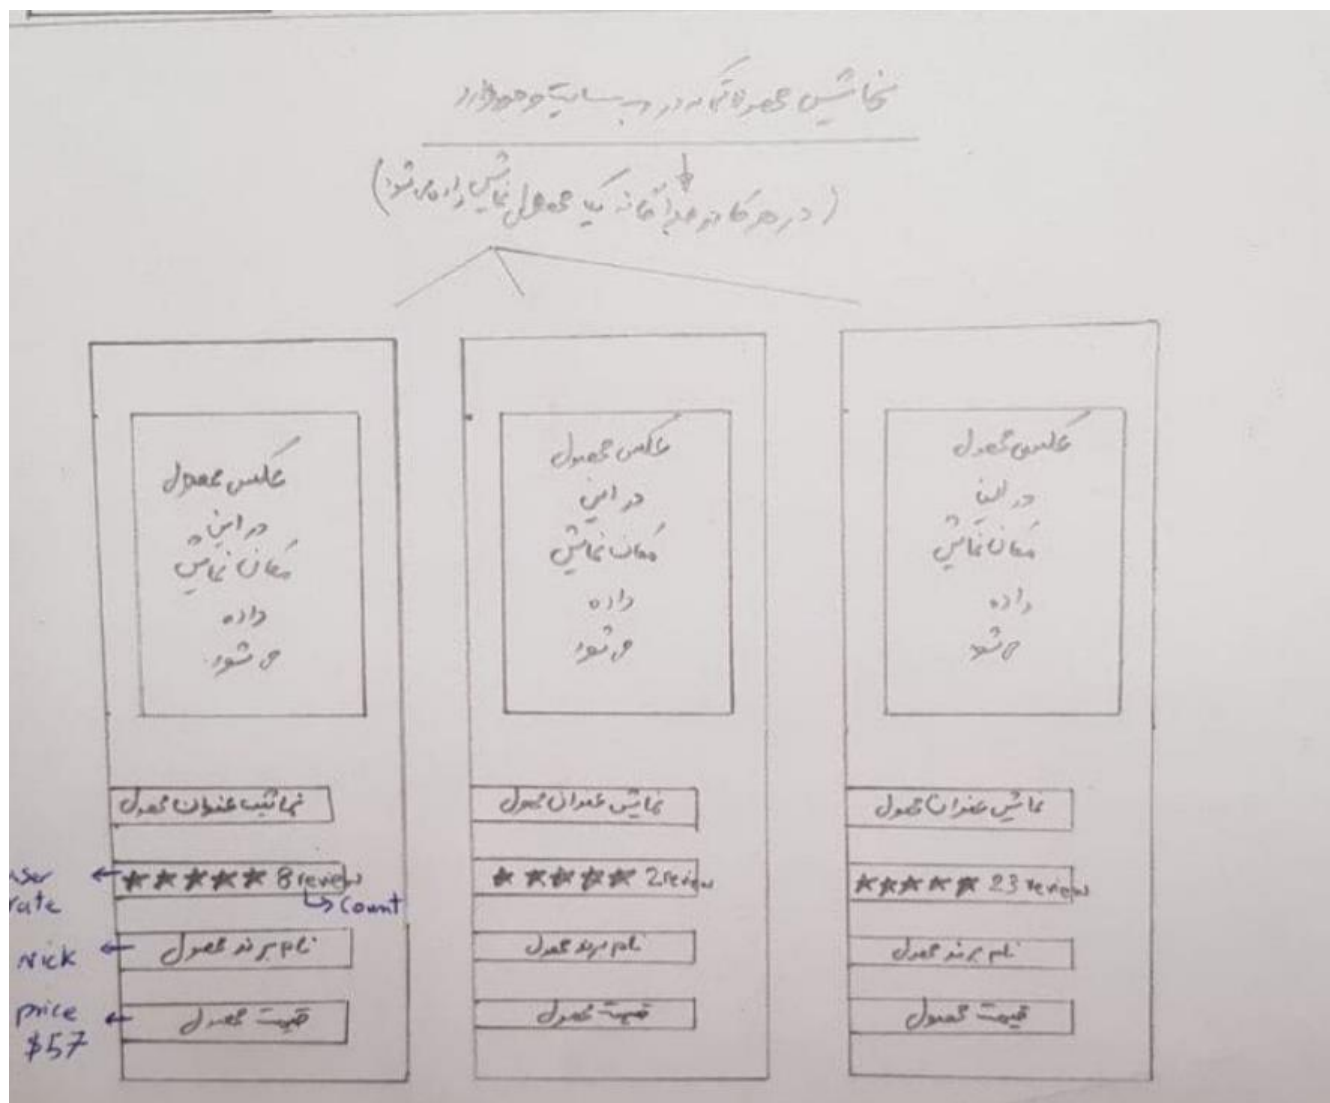 نمایش محصولاتی که در وب سایت وجود دارد
(در هر کادر جداگانه یک محصول نمایش داده می شود)
عکس محصول
در این
مکان نمایش
داده
می شود
نمایش عنوان محصول
user rate
8 review
count
نام برند محصول
Nick
قیمت محصول
price
$57
عکس محصول
در این
مکان نمایش
داده
می شود
نمایش عنوان محصول
2 review
نام برند محصول
قیمت محصول
عکس محصول
در این
مکان نمایش
داده
می شود
نمایش عنوان محصول
23 review
نام برند محصول
قیمت محصول